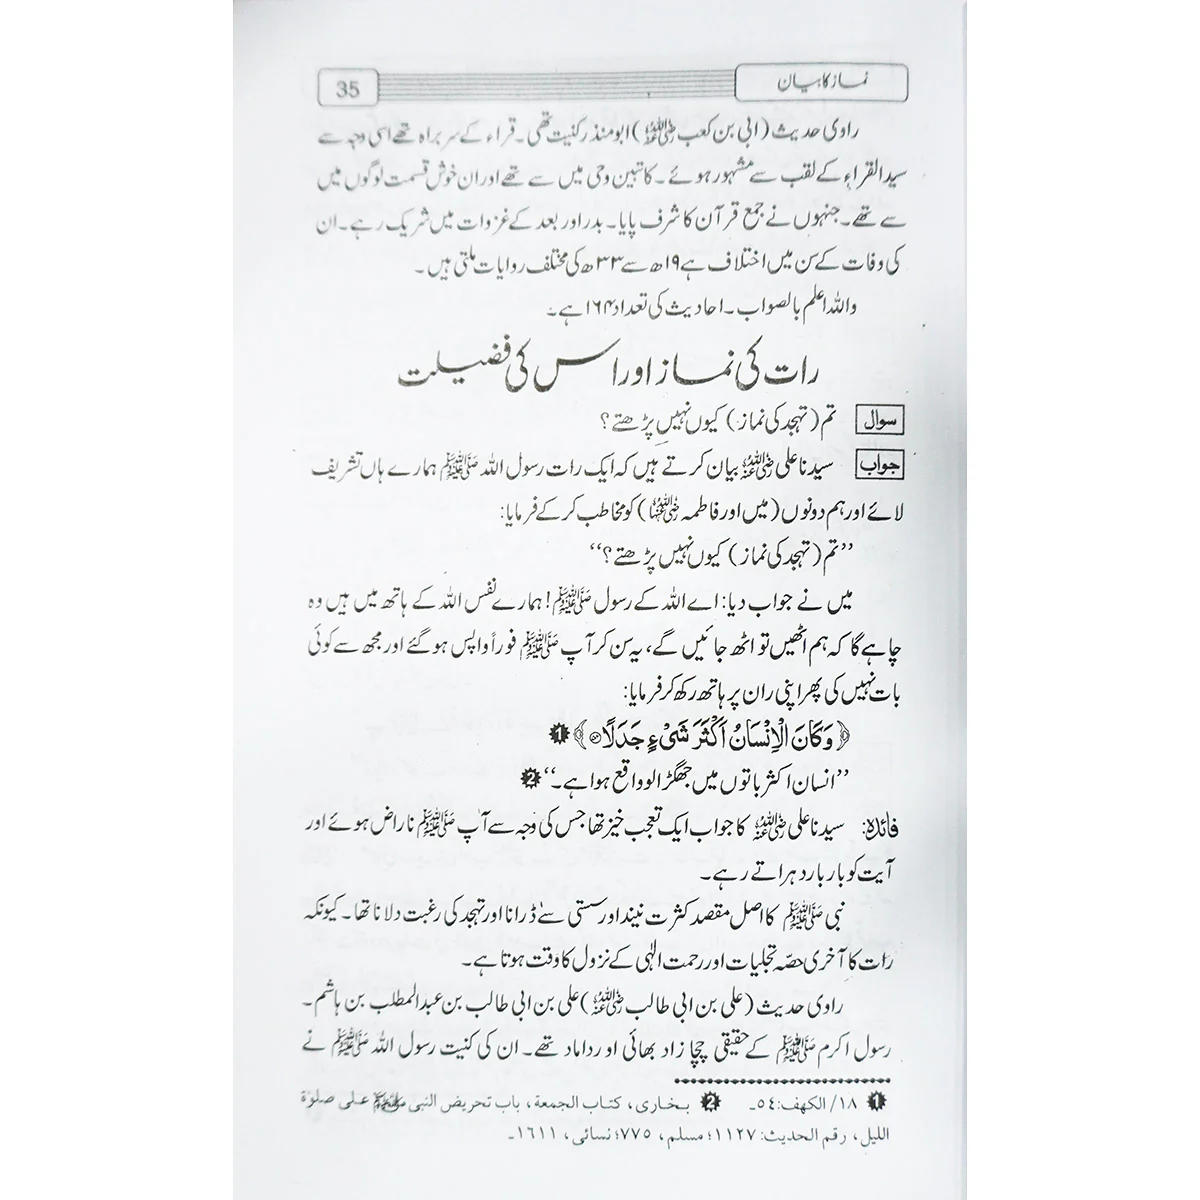 نماز کا بیان
35
راوی حدیث (ابی بن کعب رضی اللہ عنہ) ابومنذر کنیت تھی۔ قراء کے سربراہ تھے اسی وجہ سے
سید القراء کے لقب سے مشہور ہوئے۔ کاتبین وحی میں سے تھے اور ان خوش قسمت لوگوں میں
سے تھے۔ جنہوں نے جمع قرآن کا شرف پایا۔ بدر اور بعد کے غزوات میں شریک رہے۔ ان
کی وفات کے سن میں اختلاف ہے ۱۹ھ سے ۳۳ھ کی مختلف روایات ملتی ہیں۔
واللہ اعلم بالصواب۔ احادیث کی تعداد ۱۶۴ ہے۔
رات کی نماز اور اس کی فضیلت
سوال تم (تہجد کی نماز) کیوں نہیں پڑھتے؟
جواب سیدنا علی رضی اللہ عنہ بیان کرتے ہیں کہ ایک رات رسول اللہ ﷺ ہمارے ہاں تشریف
لائے اور ہم دونوں (میں اور فاطمہ رضی اللہ عنہا) کو مخاطب کر کے فرمایا:
”تم (تہجد کی نماز) کیوں نہیں پڑھتے؟“
میں نے جواب دیا: اے اللہ کے رسول ﷺ! ہمارے نفس اللہ کے ہاتھ میں ہیں وہ
چاہے گا کہ ہم اٹھیں تو اٹھ جائیں گے، یہ سن کر آپ ﷺ فوراً واپس ہو گئے اور مجھ سے کوئی
بات نہیں کی پھر اپنی ران پر ہاتھ رکھ کر فرمایا:
﴿وَكَانَ الْاِنْسَانُ اَكْثَرَ شَيْءٍ جَدَلًا ۵۴﴾ ❶
”انسان اکثر باتوں میں جھگڑالو واقع ہوا ہے۔“ ❷
فائدہ: سیدنا علی رضی اللہ عنہ کا جواب ایک تعجب خیز تھا جس کی وجہ سے آپ ﷺ ناراض ہوئے اور
آیت کو بار بار دہراتے رہے۔
نبی ﷺ کا اصل مقصد کثرت نیند اور سستی سے ڈرانا اور تہجد کی رغبت دلانا تھا۔ کیونکہ
رات کا آخری حصّہ تجلیات اور رحمت الٰہی کے نزول کا وقت ہوتا ہے۔
راوی حدیث (علی بن ابی طالب رضی اللہ عنہ) علی بن ابی طالب بن عبدالمطلب بن ہاشم۔
رسول اکرم ﷺ کے حقیقی چچا زاد بھائی اور داماد تھے۔ ان کی کنیت رسول اللہ ﷺ نے
❶ ۱۸/ الکهف: ٥٤۔ ❷ بخاری، کتاب الجمعة، باب تحریض النبی ﷺ علی صلوٰة
اللیل، رقم الحدیث: ۱۱۲۷؛ مسلم، ۷۷۵؛ نسائی، ۱۶۱۱۔